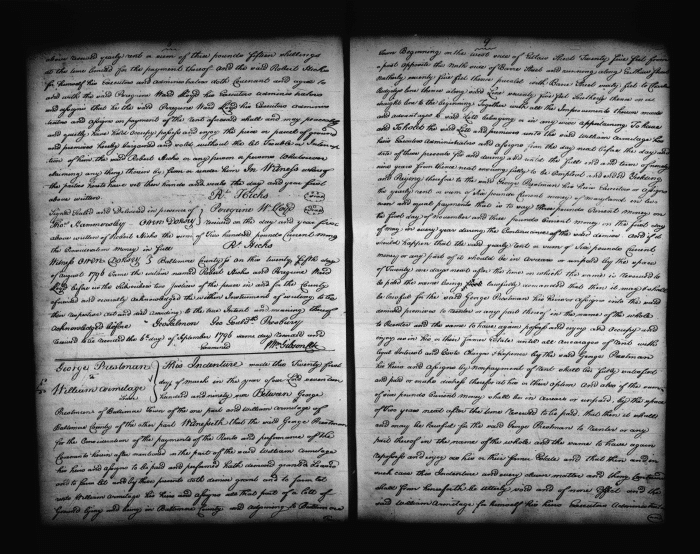 above named yearly rent or sum of three pounds fifteen shillings
at the time limited for the payment thereof and the said Robert Hicks
for himself his Executors and Administrators doth Covenant and agree to
and with the said Peregrine Ward Lloyd his Executors Administrators
and assigns that he the said Peregrine Ward Lloyd his Executors Adminis
trators and assigns on payment of the rents aforesaid shall and may peaceably
and quietly have hold occupy possess and enjoy the piece or parcel of ground
and premises hereby bargained and sold without the let Trouble or Interup
tion of him the said Robert Hicks or any person or persons Whatsoever
claiming any thing therein by from or under him In Witness whereof
the parties hereto have set their hands and seals the day and year first
above written Rt Hicks
Signed Sealed and Delivered in presence of Peregrine W Lloyd
Thos Dammonsby Owen Dorsey Received on the day and year first
above written of Robert Hicks the sum of Two hundred pounds Current money
the Consideration Money in full Rt Hicks
Witness Owen Dorsey Baltimore County ss on this twenty fifth day
of August 1796 Came the within named Robert Hicks and Peregrine Ward
Lloyd before us the Subscribers two Justices of the peace in and for the County
aforesaid and severally acknowledged the within Instrument of writing to be
their respective act and deed according to the true Intent and meaning thereof
acknowledged before Jos Salmon Geo Gouldh Presbury
received to be recorded the 6th day of September 1796 same day recorded and
Examined Wm Gibson Clk
George Prestman This Indenture made this Twenty first
to day of March in the year of our Lord seventeen
William Armitage hundred and ninety one Between George
Prestman of Baltimore Town of the one part and William Armitage of
Baltimore County of the other part Witnesseth that the said George Prestman
for the Consideration of the payments of the Rents and performance of the
Covenants herein after mentioned on the part of the said William Armitage
his heirs and assigns to be paid and performed hath demised granted Leased
and to farm let and by these presents doth demise grant and to farm let
unto William Armitage his heirs and assigns all that part of a lott of
Ground lying and being in Baltimore County and adjoining to Baltimore
9
town Beginning on the west side of Street Twenty five feet from
a post opposite the North side of Street and running along
Northerly seventy five feet thence parrelel with Street sixty feet to
ladyday line thence along said Line seventy five feet Southerly thence in a
straight line to the beginning Together with all the Improvements thereon made
and advantages to said Lott belonging or in any wise appertaining To have
and To hold the said Lott and premises unto the said William Armitage his
heirs Executors Administrators and assigns from the day next before the day and
date of these presents for and during and untill the full end and term of ninety
nine years from thence next ensuing fully to be Compleat and ended Yielding
and Paying therefor to the said George Prestman his heirs Executors or assigns
the yearly rent or sum of six pounds Current money of Maryland in two
even and equal payments that is to say Three pounds Current money on
the first day of November and three pounds Current money on the first day
of May in every year during the Continuance of the said demise And if it
should happen that the said yearly rent or sum of six pounds Current
money or any part of it should be in arrears or unpaid by the space
of Twenty one days next after the time on which the same is reserved to
be paid the same being first lawfully demanded that then it may be lawfull
to be lawful for the said George Prestman his heirs or assigns into the said
demised premises to reenter or any part thereof in the name of the whole
to Reenter and the same to have again possess and enjoy and occupy and
enjoy as in his or their former Estate untill all arrearages of rent with
legal Interest and Costs Charge & expences by the said George Prestman
his heirs and assigns by nonpayment of rent shall be fully satisfied
and paid or make distress therefor at his or their option And also if the sum
of six pounds Current money shall be in arrears or unpaid by the space
of two years next after the time reserved to be paid that then it shall
and may be lawful for the said George Prestman to reenter or any
part thereof in the name of the whole and the same to have again
repossess and enjoy as his or their former Estate and that then and in
such case this Indenture and every clause matter and thing
shall from henceforth be utterly void and of none effect and the
said William Armitage for himself his heirs Executors Administrators